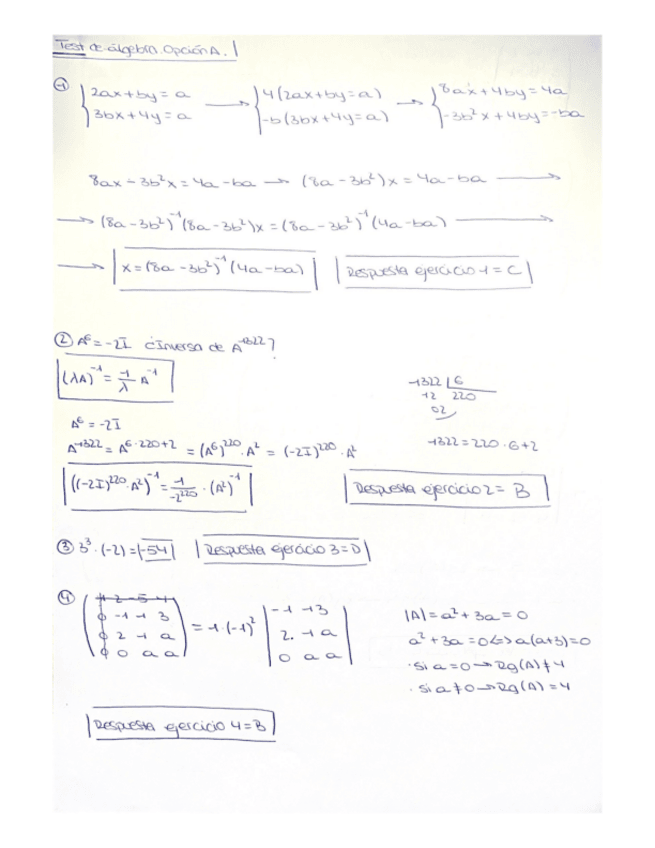 Test de álgebra. Opción A.
① {2ax+by=a → {4(2ax+by=a) → {8ax+4by=4a
{3bx+4y=a {-b(3bx+4y=a) {-3b²x+4by=-ba
8ax-3b²x=4a-ba → (8a-3b²)x=4a-ba →
→ (8a-3b²)⁻¹(8a-3b²)x=(8a-3b²)⁻¹(4a-ba) →
→ x=(8a-3b²)⁻¹(4a-ba) Respuesta ejercicio 1=C
② A⁶=-2I ¿Inversa de A¹³²²?
(λA)⁻¹=1/λ A⁻¹
1322 | 6
12 220
02
A⁶=-2I
A¹³²²=A⁶·²²⁰⁺²=(A⁶)²²⁰·A²=(-2I)²²⁰·A² 1322=220·6+2
((-2I)²²⁰·A²)⁻¹=1/-2²²⁰·(A²)⁻¹ Respuesta ejercicio 2= B
③ 3³·(-2)=-54 Respuesta ejercicio 3=D
④ 1 2 -5 4
0 -1 -1 3 = 1·(-1)² -1 -1 3 |A|=a²+3a=0
0 2 -1 a 2 -1 a a²+3a=0⇔a(a+3)=0
0 0 a a 0 a a · si a=0→Rg(A)≠4
· si a≠0→Rg(A)=4
Respuesta ejercicio 4=B